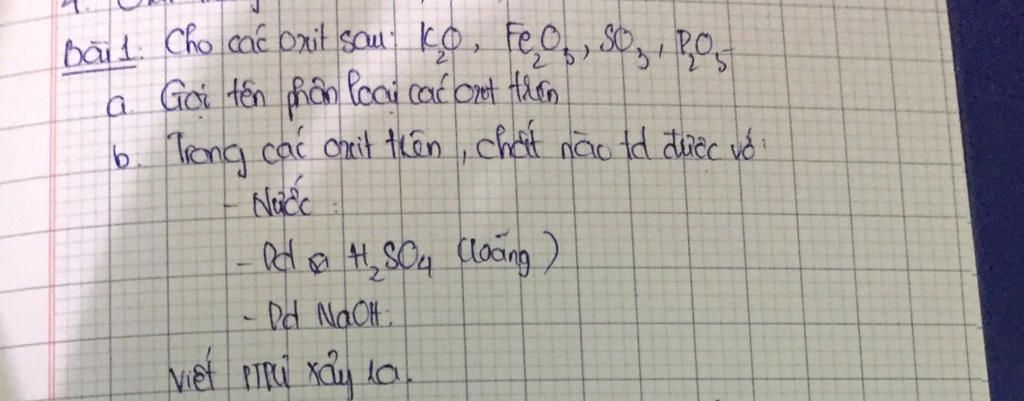 Bài 1: Cho các oxit sau: K₂O, Fe₂O₃, SO₃, P₂O₅
a. Gọi tên phân loại các oxit trên
b. Trong các oxit trên, chất nào td được vớ:
- Nước:
- Dd H₂SO₄ (loãng)
- Dd NaOH.
Viết PTPƯ xảy ra.